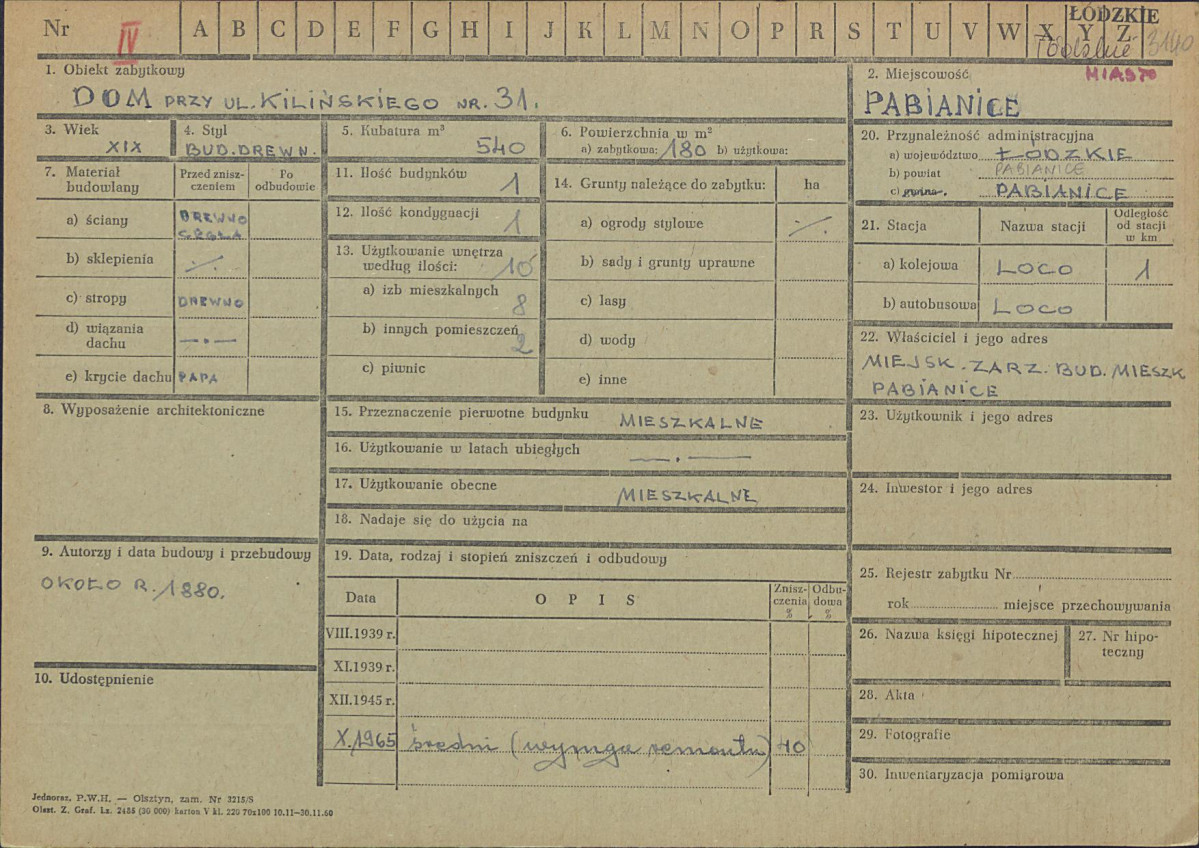 Nr IV A B C D E F G H I J K L M N O P R S T U V W X Y Z
ŁÓDZKIE
3140
1. Obiekt zabytkowy
DOM PRZY UL. KILIŃSKIEGO NR. 31.
2. Miejscowość MIASTO
PABIANICE
3. Wiek
XIX
4. Styl
BUD. DREWN.
5. Kubatura m³
540
6. Powierzchnia w m²
a) zabytkowa: 180 b) użytkowa:
7. Materiał budowlany
Przed zniszczeniem
Po odbudowie
a) ściany DREWNO CEGŁA
b) sklepienia ·/.
c) stropy DREWNO
d) wiązania dachu — . —
e) krycie dachu PAPA
8. Wyposażenie architektoniczne
9. Autorzy i data budowy i przebudowy
OKOŁO R. 1880.
10. Udostępnienie
11. Ilość budynków 1
12. Ilość kondygnacji 1
13. Użytkowanie wnętrza
według ilości: 10
a) izb mieszkalnych 8
b) innych pomieszczeń 2
c) piwnic
14. Grunty należące do zabytku: ha
a) ogrody stylowe ·/.
b) sady i grunty uprawne
c) lasy
d) wody
e) inne
15. Przeznaczenie pierwotne budynku MIESZKALNE
16. Użytkowanie w latach ubiegłych — . —
17. Użytkowanie obecne MIESZKALNE
18. Nadaje się do użycia na
19. Data, rodzaj i stopień zniszczeń i odbudowy
Data O P I S Zniszczenia % Odbudowa %
VIII.1939 r.
XI.1939 r.
XII.1945 r.
X.1965 średni (wymaga remontu) 40
20. Przynależność administracyjna
a) województwo ŁÓDZKIE
b) powiat PABIANICE
c) gmina. PABIANICE
21. Stacja Nazwa stacji Odległość od stacji w km
a) kolejowa LOCO 1
b) autobusowa LOCO
22. Właściciel i jego adres
MIEJSK. ZARZ. BUD. MIESZK
PABIANICE
23. Użytkownik i jego adres
24. Inwestor i jego adres
25. Rejestr zabytku Nr
rok miejsce przechowywania
26. Nazwa księgi hipotecznej
27. Nr hipoteczny
28. Akta
29. Fotografie
30. Inwentaryzacja pomiarowa
Jednoraz. P.W.H. — Olsztyn, zam. Nr 3215/S
Olszt. Z. Graf. Lz. 2485 (30 000) karton V kl. 220 70x100 10.11—30.11.60